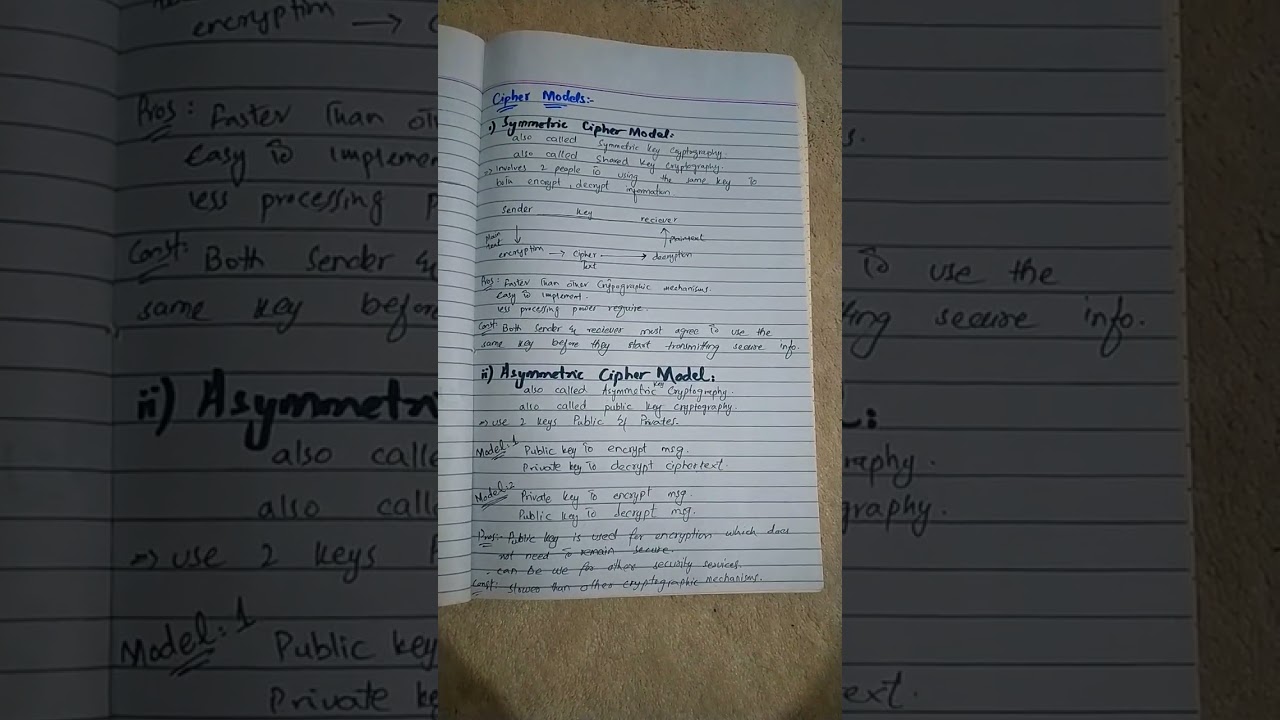 Cipher Models:-
i) Symmetric Cipher Model:
also called Symmetric key Cryptography.
also called Shared key Cryptography.
⇒ involves 2 people to using the same key to
both encrypt, decrypt information.
Sender key reciever
Plain text plaintext
encryption → Cipher Text → decryption
Pros: Faster Than other Cryptographic mechanisms.
Easy to implement.
less processing power require.
Const: Both Sender & reciever must agree to use the
same key before they start transmitting secure info.
ii) Asymmetric Cipher Model:
also called Asymmetric key Cryptography.
also called public key cryptography.
⇒ use 2 keys Public & Privates.
Model:1 Public key to encrypt msg.
Private key to decrypt ciphertext.
Model:2 Private key to encrypt msg.
Public key to decrypt msg.
Pros:- Public key is used for encryption which does
not need to remain secure.
- can be use for other security services.
Const: slower than other cryptographic mechanisms.